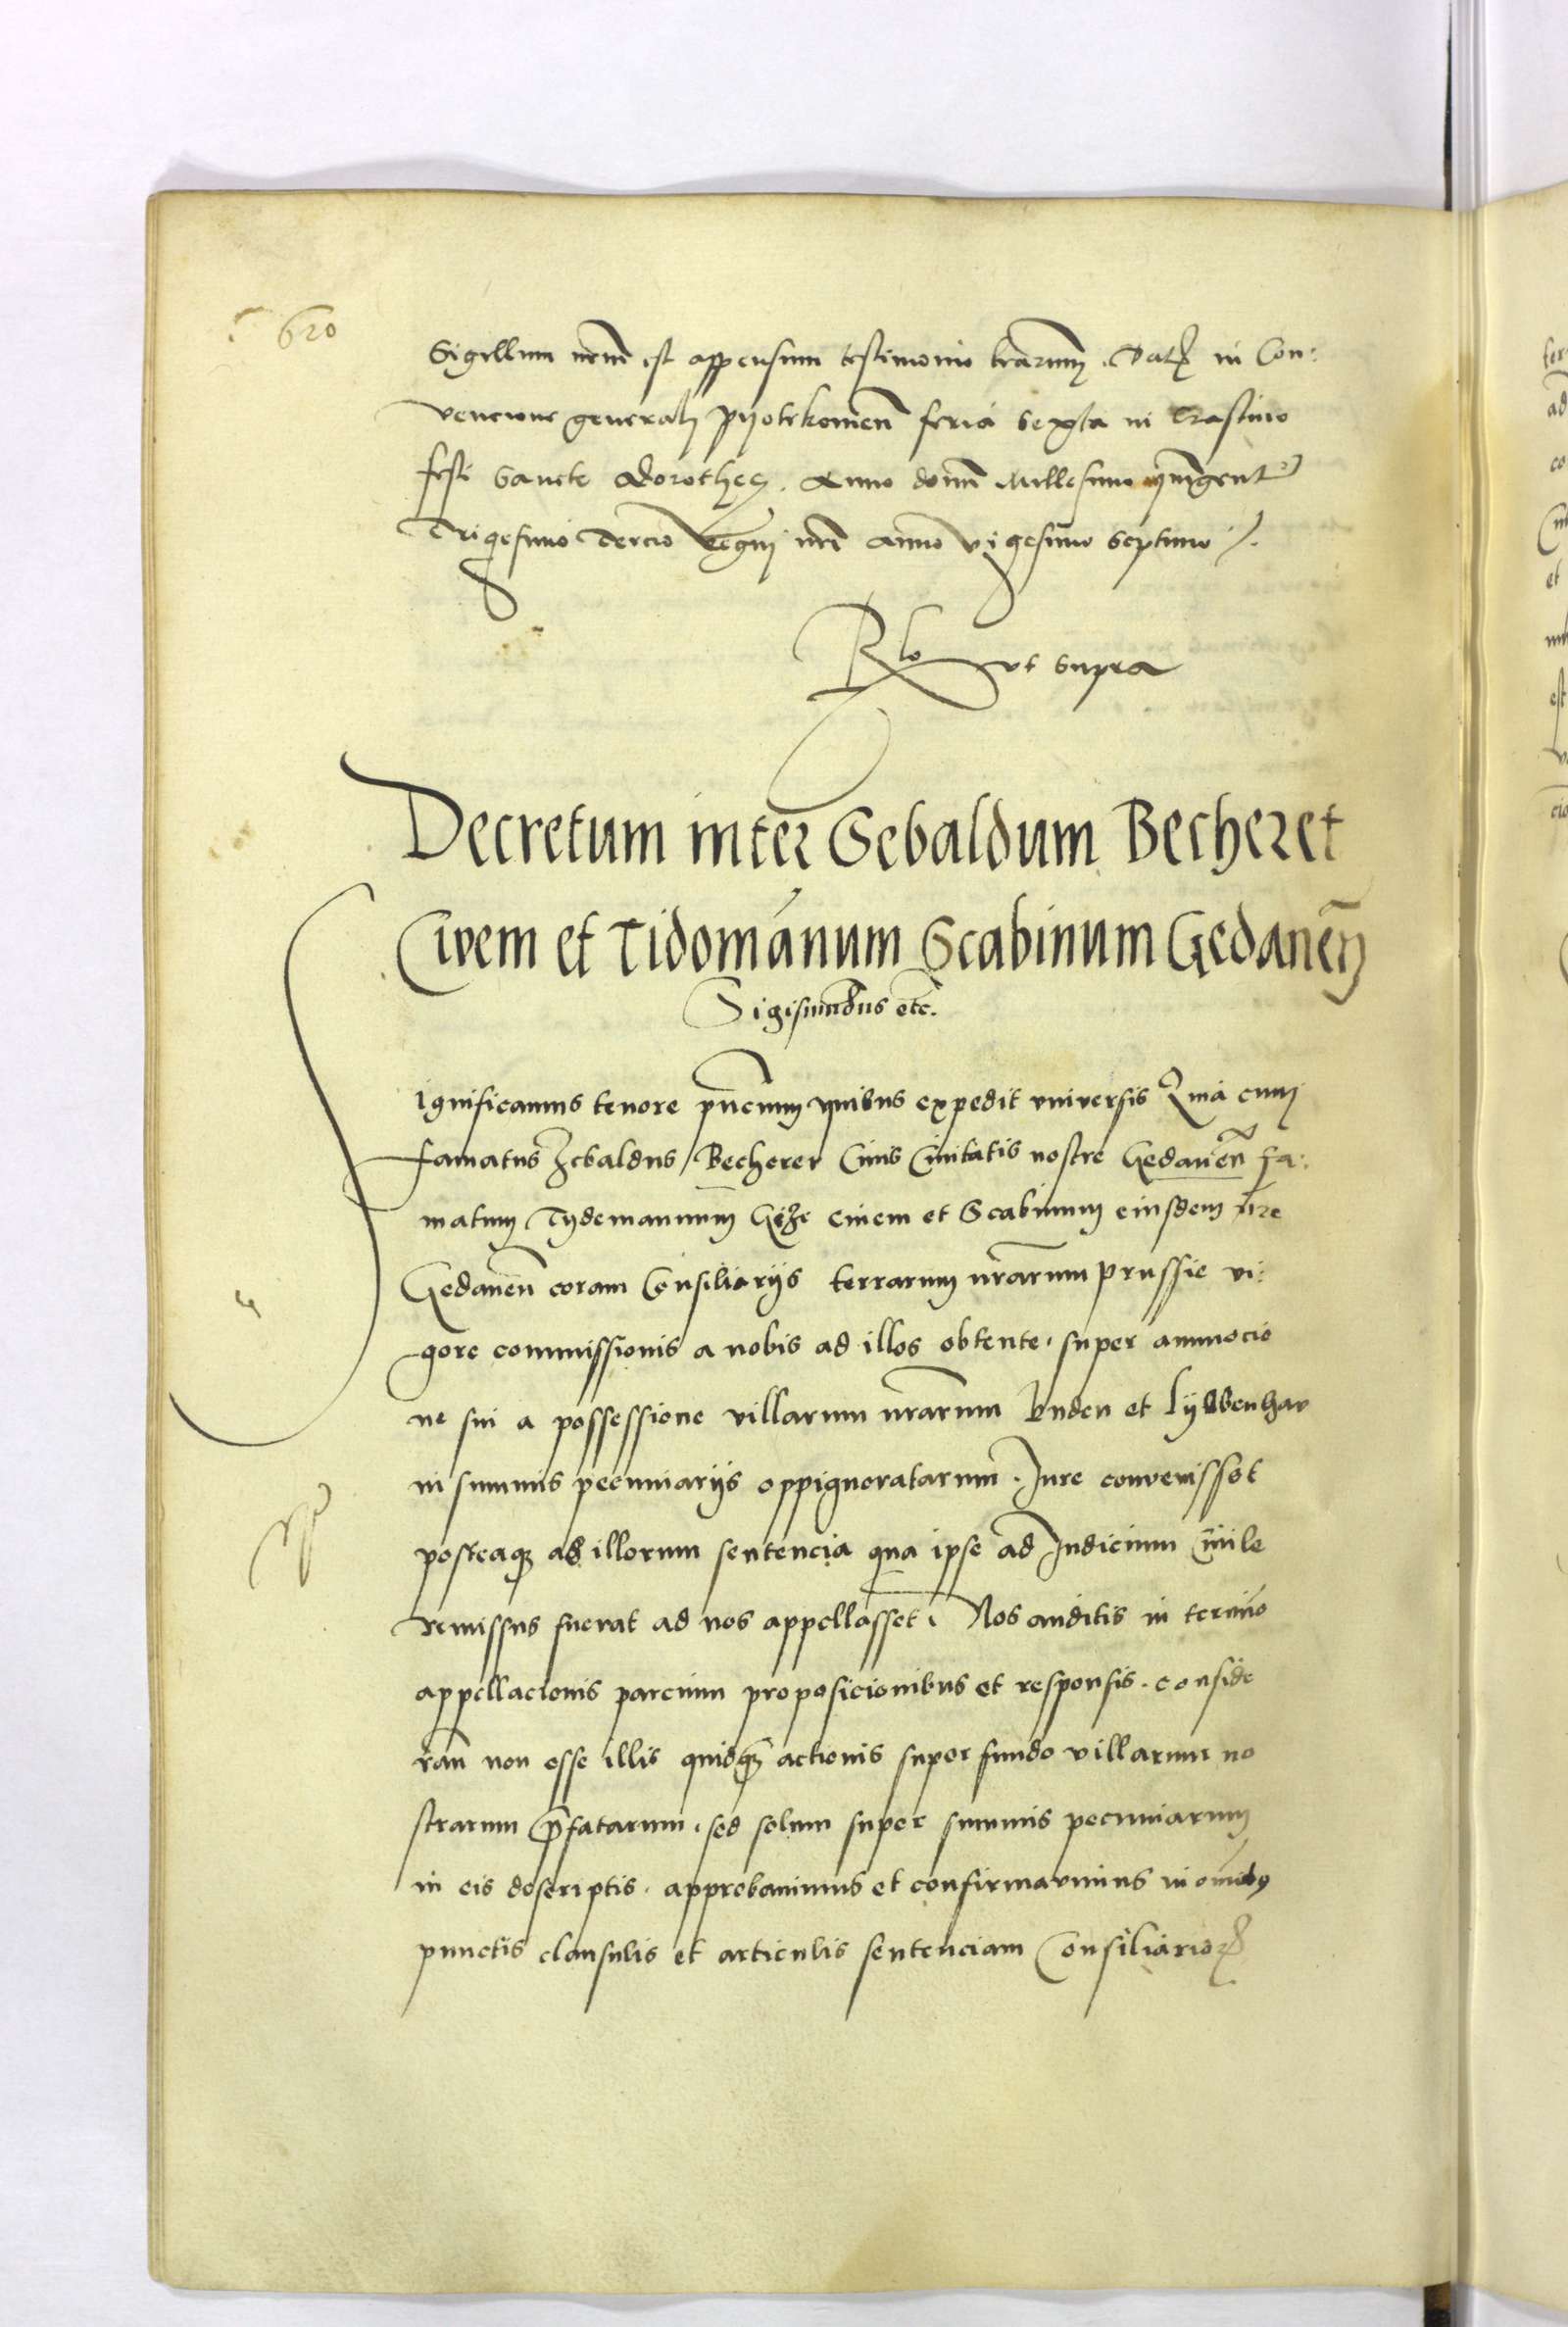 620
Sigillum nrm̄ est appensum testimonio lrarum. Datꝭ in Con:
vencione generali Pyotrkowien̄ feria Sexta in Crastino
festi Sancte Dorothee. Anno domi Millesimo quingent
Trigesimo Tercio Regni nrī anno vigesimo Septimo
Rlo ut Supra
Decretum inter Sebaldum Becher et
Civem et Tidomanum Scabinum Gedanen̄
Sigismundus etc.
Significamus tenore pn̄cium quibus expedit universis Quia cum
famatus Zebaldus Becherer Civis Civitatis nostre Gedanen̄ fa:
matum Tydemannum Gize civem et Scabinum eiusdem nr̄e
Gedanen̄ coram Consiliariis terrarum nrārum Prussie vi:
gore commissionis a nobis ad illos obtente. super ammocio
ne sui a possessione villarum nrārum et
in summis pecuniariis oppignoratarum. Jure convenisset
posteaqꝫ ab illorum sentencia qua ipse ad Judicium civile
remissus fuerat ad nos appellasset. Nos auditis in termino
appellacionis parcium proposicionibus et responsis. conside
ran̄ non esse illis quidqꝫ actionis super fundo villarum no
strarum p̄fatarum. sed solum super summis pecuniarum
in eis descriptis. approbavimus et confirmavimus in omnibꝰ
punctis clausulis et articulis sentenciam Consiliarioꝝ